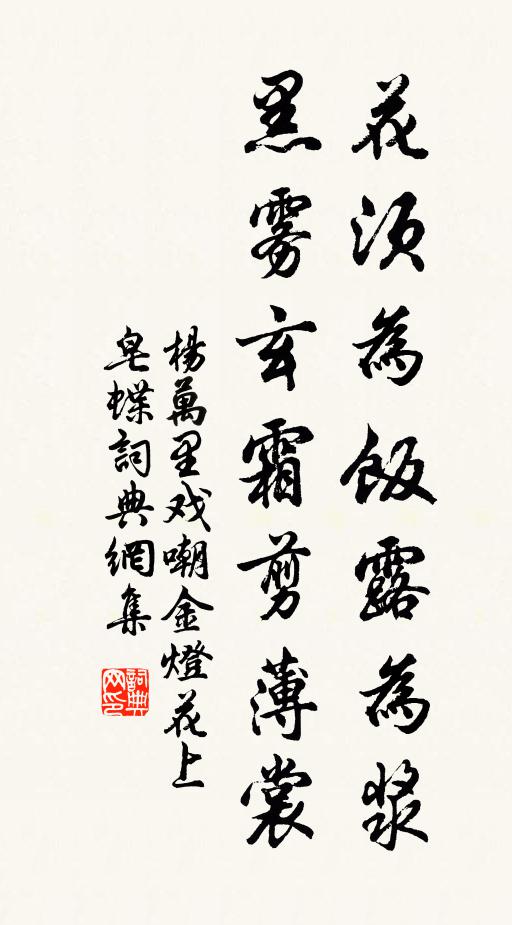 花須為飯露為漿
黑雾玄霜剪薄裳
楊萬里戏嘲金燈花上
皂蝶詞典網集
詞典网印